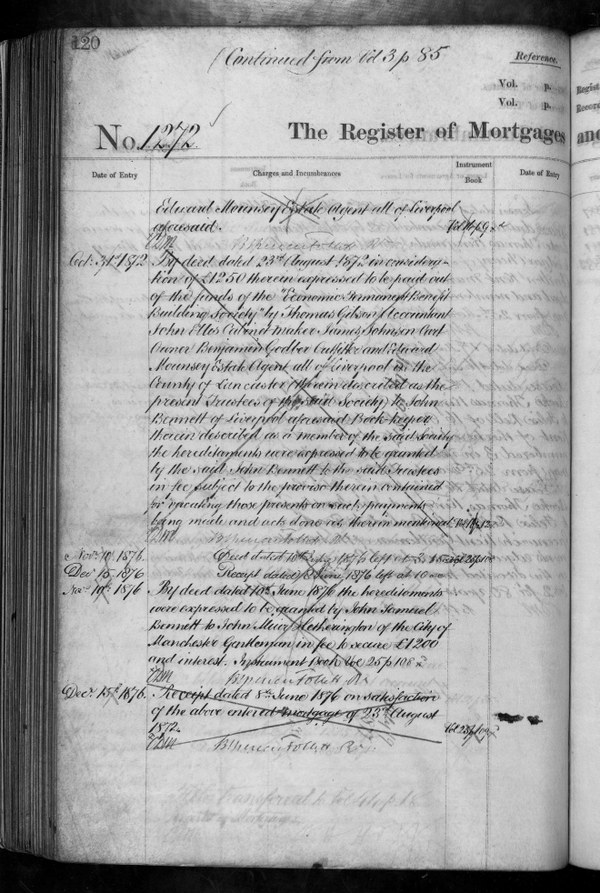 120
(Continued from Vol 3 p 85
Reference.
Vol. p.
Vol. p.
No. 1272
The Register of Mortgages
and
Date of Entry
Charges and Incumbrances
Instrument Book
Date of Entry
Edward Mounsey Estate Agent all of Liverpool
aforesaid.
Oct. 31st 1872
By deed dated 23rd August 1872 in considera-
tion of £1250 therein expressed to be paid out
of the funds of the "Economic Permanent Benefit
Building Society" by Thomas Gibson Accountant
John Ellos Cabinet Maker James Johnson Cart
Owner Benjamin Godber and Edward
Mounsey Estate Agent, all of Liverpool in the
County of Lancaster (therein described as the
present Trustees of the said Society) to John
Bennett of Liverpool aforesaid Book-keeper
therein described as a member of the said Society
the hereditaments were expressed to be granted
by the said John Bennett to the said Trustees
in fee subject to the proviso therein contained
for vacating those presents on such payments
being made and acts done as therein mentioned
Nov. 10th 1876.
Deed dated 10th 1876 left at
Decr 15 1876
Receipt dated 8 June 1876 left at 10
Nov. 10th 1876
By deed dated 10th June 1876 the hereditaments
were expressed to be granted by John Samuel
Bennett to John Muir Hetherington of the City of
Manchester Gentleman in fee to secure £1200
and interest. Instrument Book Vol 25 p 108
Decr. 15th 1876.
Receipt dated 8th June 1876 on satisfaction
of the above entered mortgage of 23rd August
1872.